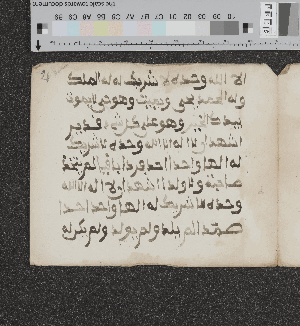 الا الله وحده لا شريك له له الملك
وله الحمد يحي ويميت وهو حي لا يموت
بيده الخير وهو على كل شيء قدير
اشهد ان لا اله الا الله وحده لا شريك
له الها واحدا احد فردا باقيا لم يتخذ
صاحبة ولا ولدا اشهد ان لا اله الا الله
وحده لا شريك له الها واحدا احدا
صمدا لم يلد ولم يولد ولم يكن له